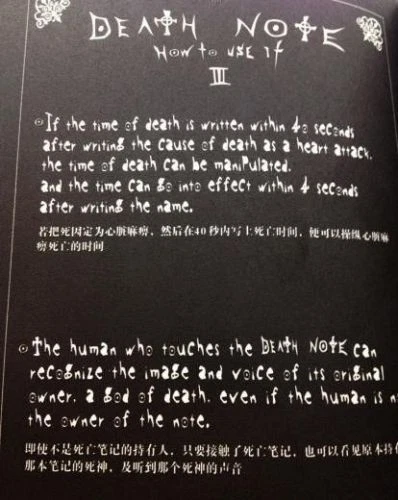 DEATH NOTE
How to use It
III
If the time of death is written within 40 seconds
after writing the cause of death as a heart attack,
the time of death can be manipulated,
and the time can go into effect within 4 seconds
after writing the name.
若把死因定为心脏麻痹，然后在40秒内写上死亡时间，便可以操纵心脏麻
痹死亡的时间
The human who touches the DEATH NOTE can
recognize the image and voice of its original
owner, a god of death, even if the human is n
the owner of the note.
即使不是死亡笔记的持有人，只要接触了死亡笔记，也可以看见原本持
那本笔记的死神，及听到那个死神的声音